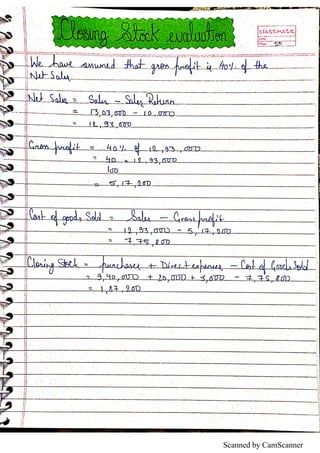 Closing Stock evaluation
classmate
Date
Page 55
We have assumed that gross profit is 40% of the
Net Sales.
Net Sales = Sales - Sales Return
= 13,03,000 - 10,000
= 12,93,000
Gross profit = 40% of 12,93,000
= 40 × 12,93,000
100
= 5,17,200
Cost of goods Sold = Sales - Gross profit
= 12,93,000 - 5,17,200
= 7,75,800
Closing Stock = purchases + Direct expenses - Cost of Goods Sold
= 9,40,000 + 20,000 + 3,000 - 7,75,800
= 1,87,200
Scanned by CamScanner